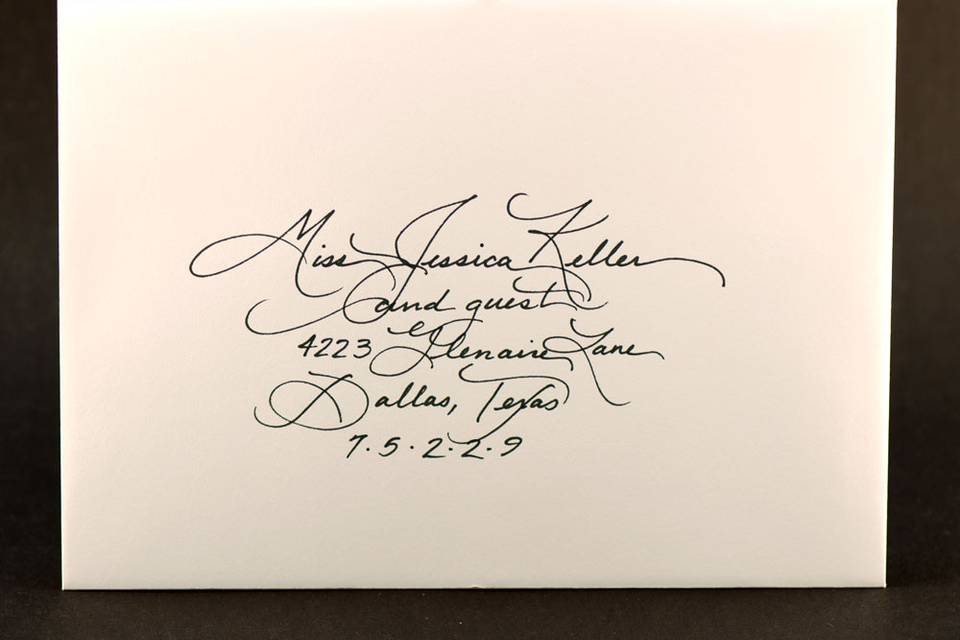 Miss Jessica Keller
and guest
4223 Glenaire Lane
Dallas, Texas
7·5·2·2·9